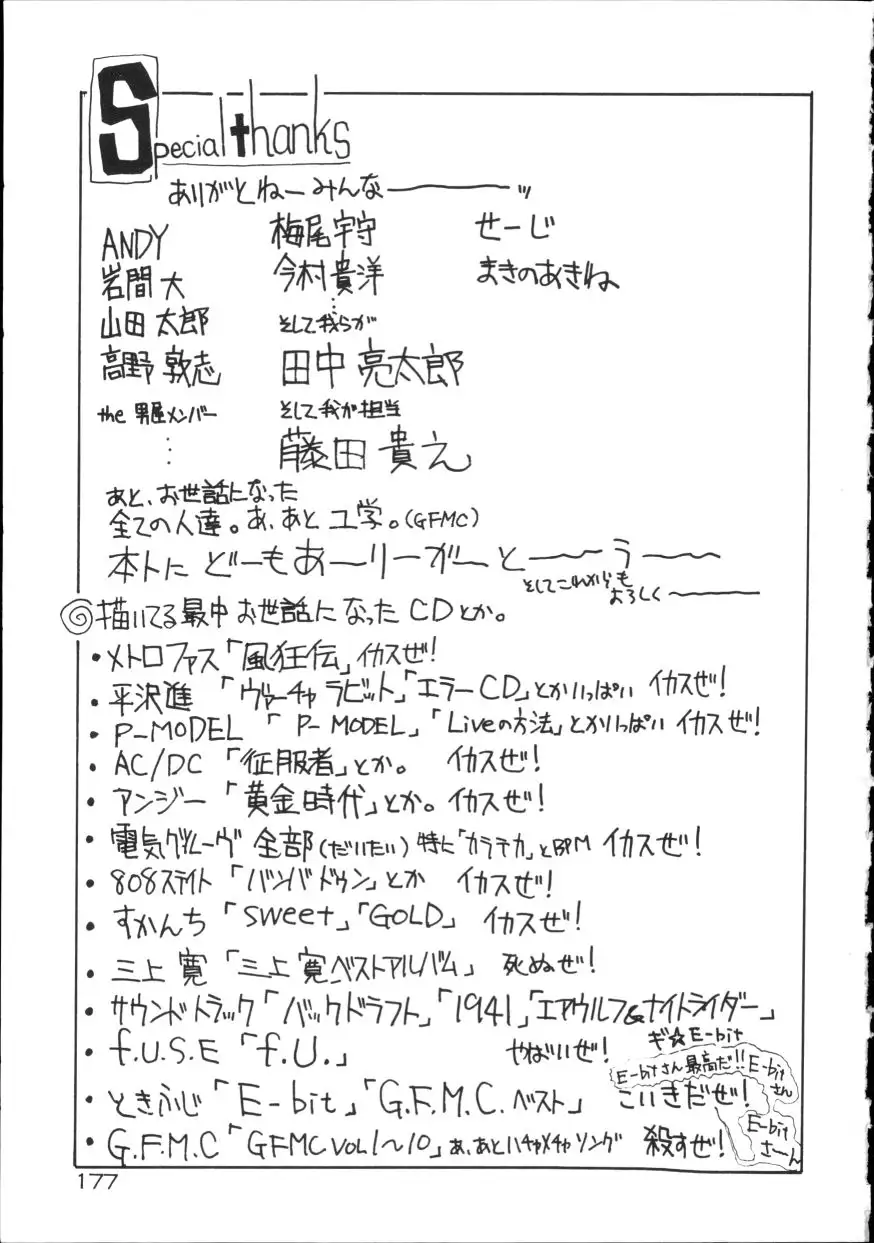 Special thanks
ありがとねーみんな――ッ
ANDY
岩間 大
山田 太郎
高野 敦志
the 男屋メンバー
⋮
梅尾宇守
今村貴洋
⋮
そして我らが
田中 亮太郎
そして我が担当
藤田 貴え
せーじ
まきのあきね
あと、お世話になった
全ての人達。あ、あと ユ学。(GFMC)
本トに どーもあーりーがーと――う――
そしてこれからも
よろしく――
描いてる最中 お世話になった CDとか。
・メトロファス「風狂伝」イカスぜ!
・平沢進 「ヴァーチャ ラビット」「エラーCD」とかいっぱい イカスぜ!
・P-MODEL 「P-MODEL」「Liveの方法」とかいっぱい イカスぜ!
・AC/DC 「征服者」とか。 イカスぜ!
・アンジー「黄金時代」とか。イカスぜ!
・電気グルーヴ 全部(だいたい) 特に「カラテカ」とBPM イカスぜ!
・808ステイト「バンババドゥン」とか イカスぜ!
・すかんち「Sweet」「GOLD」 イカスぜ!
・三上 寛「三上 寛ベストアルバム」 死ぬぜ!
・サウンドトラック「バックドラフト」「1941」「エアウルフ&ナイトライダー」
・f.U.S.E「f.U.」 やばいぜ!
ギ☆E-bit
E-bitさん最高だ!!
E-bitさん
・ときふじ「E-bit」「G.F.M.C.ベスト」 こいきだぜ!
E-bitさーん
・G.F.M.C「GFMC VOL1〜10」あ、あとハチャメチャソング 殺すぜ!
177